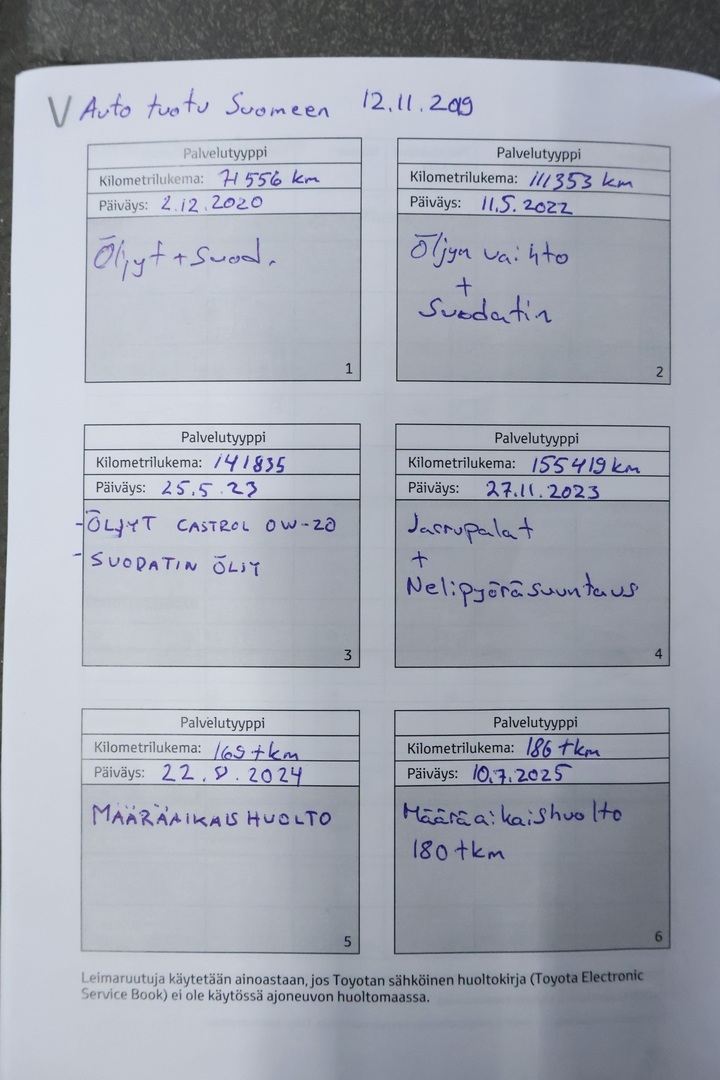 V Auto tuotu Suomeen 12.11.2019
Palvelutyyppi
Kilometrilukema: 71 556 km
Päiväys: 2.12.2020
Öljyt + Suod.
1
Palvelutyyppi
Kilometrilukema: 111353 km
Päiväys: 11.5.2022
Öljyn vaihto
+
Suodatin
2
Palvelutyyppi
Kilometrilukema: 141835
Päiväys: 25.5.23
-ÖLJYT CASTROL 0W-20
- SUODATIN ÖLJY
3
Palvelutyyppi
Kilometrilukema: 155419 km
Päiväys: 27.11.2023
Jarrupalat
+
Nelipyöräsuuntaus
4
Palvelutyyppi
Kilometrilukema: 169 tkm
Päiväys: 22.8.2024
MÄÄRÄAIKAISHUOLTO
5
Palvelutyyppi
Kilometrilukema: 186 tkm
Päiväys: 10.7.2025
Määräaikaishuolto
180 tkm
6
Leimaruutuja käytetään ainoastaan, jos Toyotan sähköinen huoltokirja (Toyota Electronic
Service Book) ei ole käytössä ajoneuvon huoltomaassa.